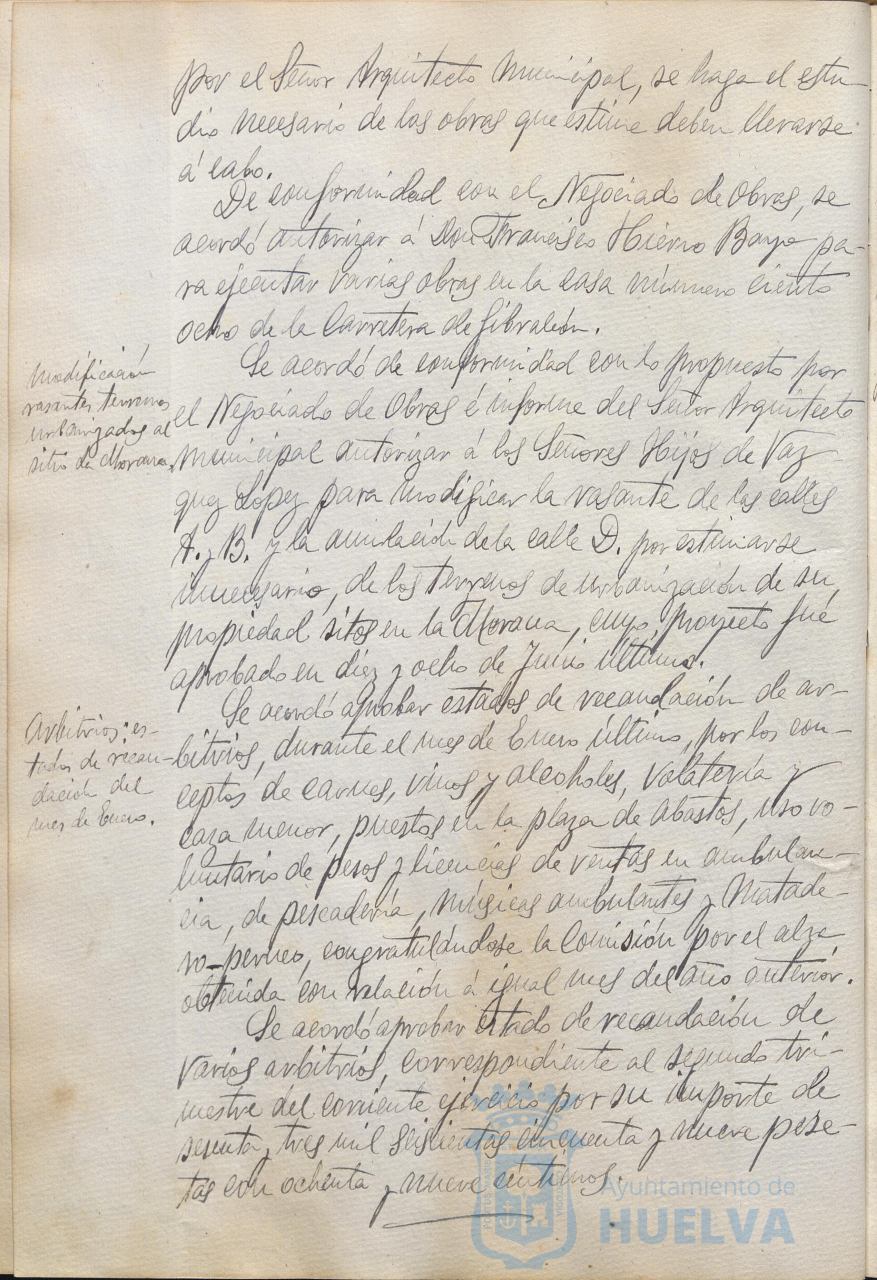 por el Señor Arquitecto Municipal, se haga el estu-
dio necesario de las obras que estime deben llevarse
á cabo.
De conformidad con el Negociado de Obras, se
acordó autorizar á Don Francisco Hierro Bayo pa-
ra ejecutar varias obras en la casa número ciento
ocho de la Carretera de Gibraleón.
Modificación
rasantes terrenos
urbanizados al
sitio de Morana.
Se acordó de conformidad con lo propuesto por
el Negociado de Obras é informe del Señor Arquitecto
Municipal autorizar á los Señores Hijos de Vaz-
quez Lopez para modificar la rasante de las calles
A. y B. y la anulación de la calle D. por estimarse
innecesario, de los terrenos de urbanización de su
propiedad sitos en la Morana, cuyo proyecto fué
aprobado en diez y ocho de Junio último.
Arbitrios: es-
tados de recau-
dación del
mes de Enero.
Se acordó aprobar estados de recaudación de ar-
bitrios, durante el mes de Enero último, por los con-
ceptos de carnes, vinos y alcoholes, volatería y
caza menor, puestos en la plaza de Abastos, uso vo-
luntario de pesos y licencias de ventas en ambulan-
cia, de pescadería, músicas ambulantes y Matade-
ro-perneo, congratulándose la Comisión por el alza
obtenida con relación á igual mes del año anterior.
Se acordó aprobar estado de recaudación de
varios arbitrios, correspondiente al segundo tri-
mestre del corriente ejercicio por su importe de
sesenta y tres mil seiscientas cincuenta y nueve pese-
tas con ochenta y nueve céntimos.
Ayuntamiento de
HUELVA